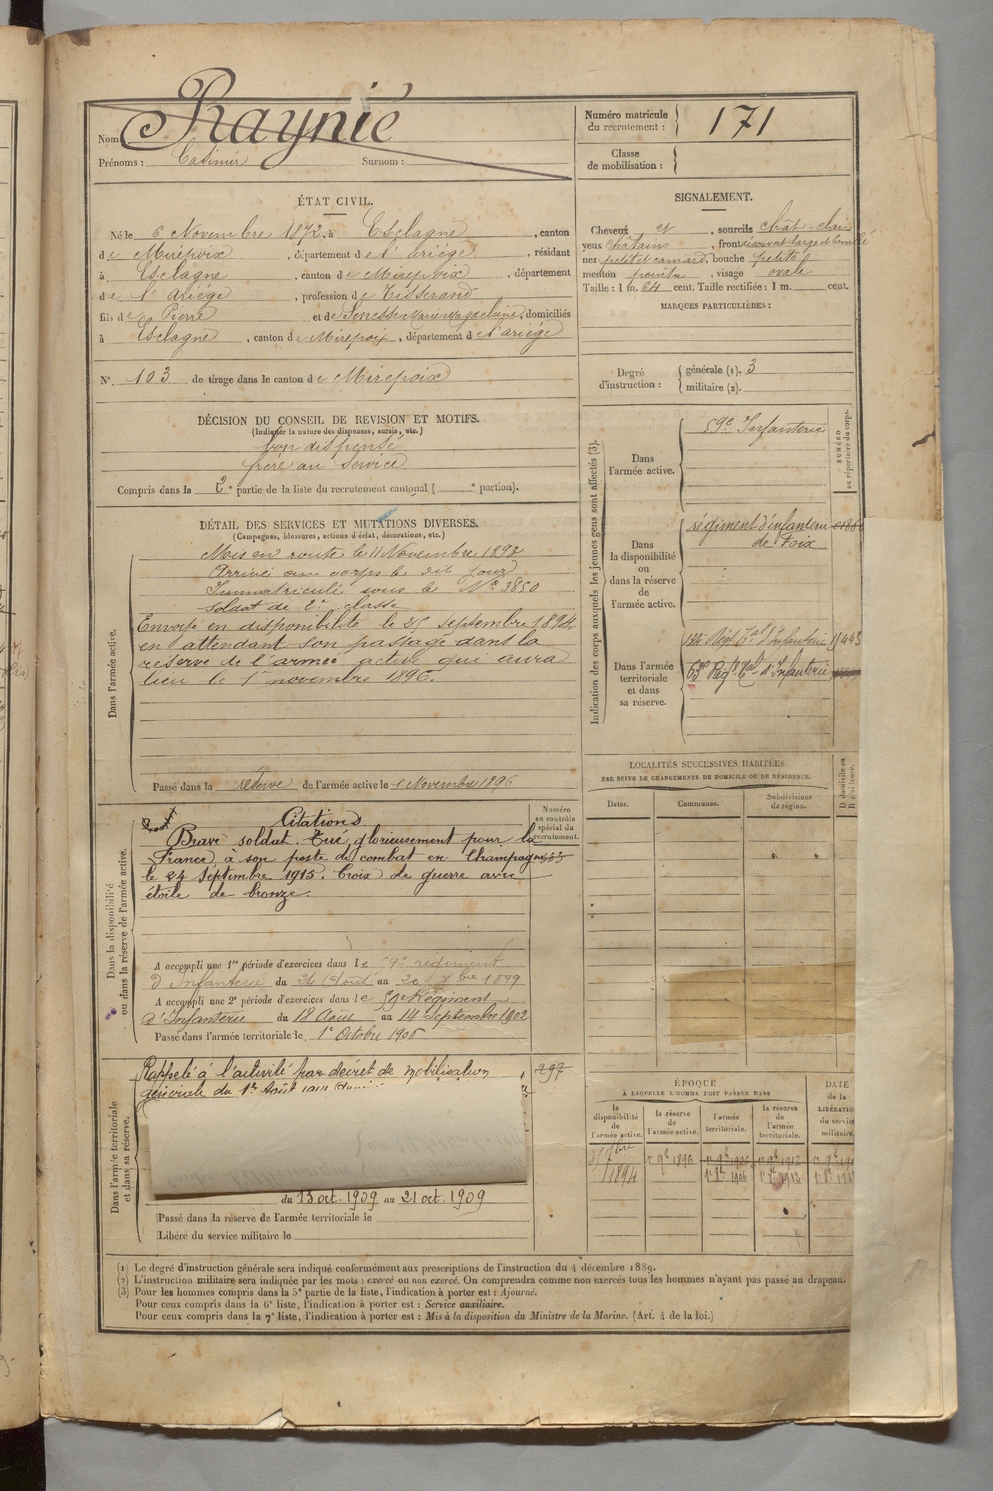 Nom : Raynié
Prénoms : Casimir Surnom :
Numéro matricule du recrutement : 171
Classe de mobilisation :
ÉTAT CIVIL.
Né le 6 Novembre 1872, à Esclagne, canton
de Mirepoix, département de l'Ariége, résidant
à Esclagne, canton de Mirepoix, département
de l'Ariége, profession de Tisserand
fils de Pierre et de Senesse Marie Magdelaine, domiciliés
à Esclagne, canton de Mirepoix, département de l'ariége
N° 103 de tirage dans le canton de Mirepoix
SIGNALEMENT.
Cheveux et, sourcils chât. clair
yeux châtains, front découvert large et bombé
nez petit et camard, bouche petite
menton pointu, visage ovale
Taille : 1 m. 64 cent. Taille rectifiée : 1 m. cent.
MARQUES PARTICULIÈRES :
Degré d'instruction : générale (1). 3
militaire (2).
DÉCISION DU CONSEIL DE REVISION ET MOTIFS.
(Indiquer la nature des dispenses, sursis, etc.)
bon dispensé
frère au service
Compris dans la 2e partie de la liste du recrutement cantonal ( e portion).
DÉTAIL DES SERVICES ET MUTATIONS DIVERSES.
(Campagnes, blessures, actions d'éclat, décorations, etc.)
Dans l'armée active.
Mis en route le 11 Novembre 1893
Arrivé au corps le dit jour
Immatriculé sous le N° 3850
Soldat de 2e classe
Envoyé en disponibilité le 25 septembre 1894
en attendant son passage dans la
réserve de l'armée active qui aura
lieu le 1er novembre 1896.
Passé dans la réserve de l'armée active le 1 Novembre 1896
Indication des corps auxquels les jeunes gens sont affectés (3).
NUMÉRO au répertoire du corps.
Dans l'armée active.
59e Infanterie
Dans la disponibilité ou dans la réserve de l'armée active.
régiment d'infanterie
de Foix
Dans l'armée territoriale et dans sa réserve.
134e Régt Tal d'Infanterie
Régt Tal d'Infanterie
LOCALITÉS SUCCESSIVES HABITÉES
PAR SUITE DE CHANGEMENTS DE DOMICILE OU DE RÉSIDENCE.
D domicile ou R résidence.
Dates. Communes. Subdivisions de région.
Dans la disponibilité ou dans la réserve de l'armée active.
Numéro au contrôle spécial du recrutement.
Citations
Brave soldat. Tué glorieusement pour la
France, à son poste de combat en Champagne
le 24 Septembre 1915. Croix de guerre avec
étoile de bronze.
A accompli une 1re période d'exercices dans le 59e régiment
d'Infanterie du 24 Août au 20 7bre 1899
A accompli une 2e période d'exercices dans le 59e Régiment
d'Infanterie du 18 Août au 14 Septembre 1902
Passé dans l'armée territoriale le 1er Octobre 1906
Dans l'armée territoriale et dans sa réserve.
Rappelé à l'activité par décret de mobilisation
générale du 1er Août
297
du 13 oct. 1909 au 21 oct. 1909
Passé dans la réserve de l'armée territoriale le
Libéré du service militaire le
ÉPOQUE
À LAQUELLE L'HOMME DOIT PASSER DANS
la disponibilité de l'armée active. la réserve de l'armée active. l'armée territoriale. la réserve de l'armée territoriale.
DATE de la LIBÉRATION du service militaire.
1894 1er 9b 1896 1er 9b 1906 1er 9b 1912
1er 8b 1906 1er 8b 1912
(1) Le degré d'instruction générale sera indiqué conformément aux prescriptions de l'instruction du 4 décembre 1889.
(2) L'instruction militaire sera indiquée par les mots : exercé ou non exercé. On comprendra comme non exercés tous les hommes n'ayant pas passé au drapeau.
(3) Pour les hommes compris dans la 5e partie de la liste, l'indication à porter est : Ajourné.
Pour ceux compris dans la 6e liste, l'indication à porter est : Service auxiliaire.
Pour ceux compris dans la 7e liste, l'indication à porter est : Mis à la disposition du Ministre de la Marine. (Art. 4 de la loi.)